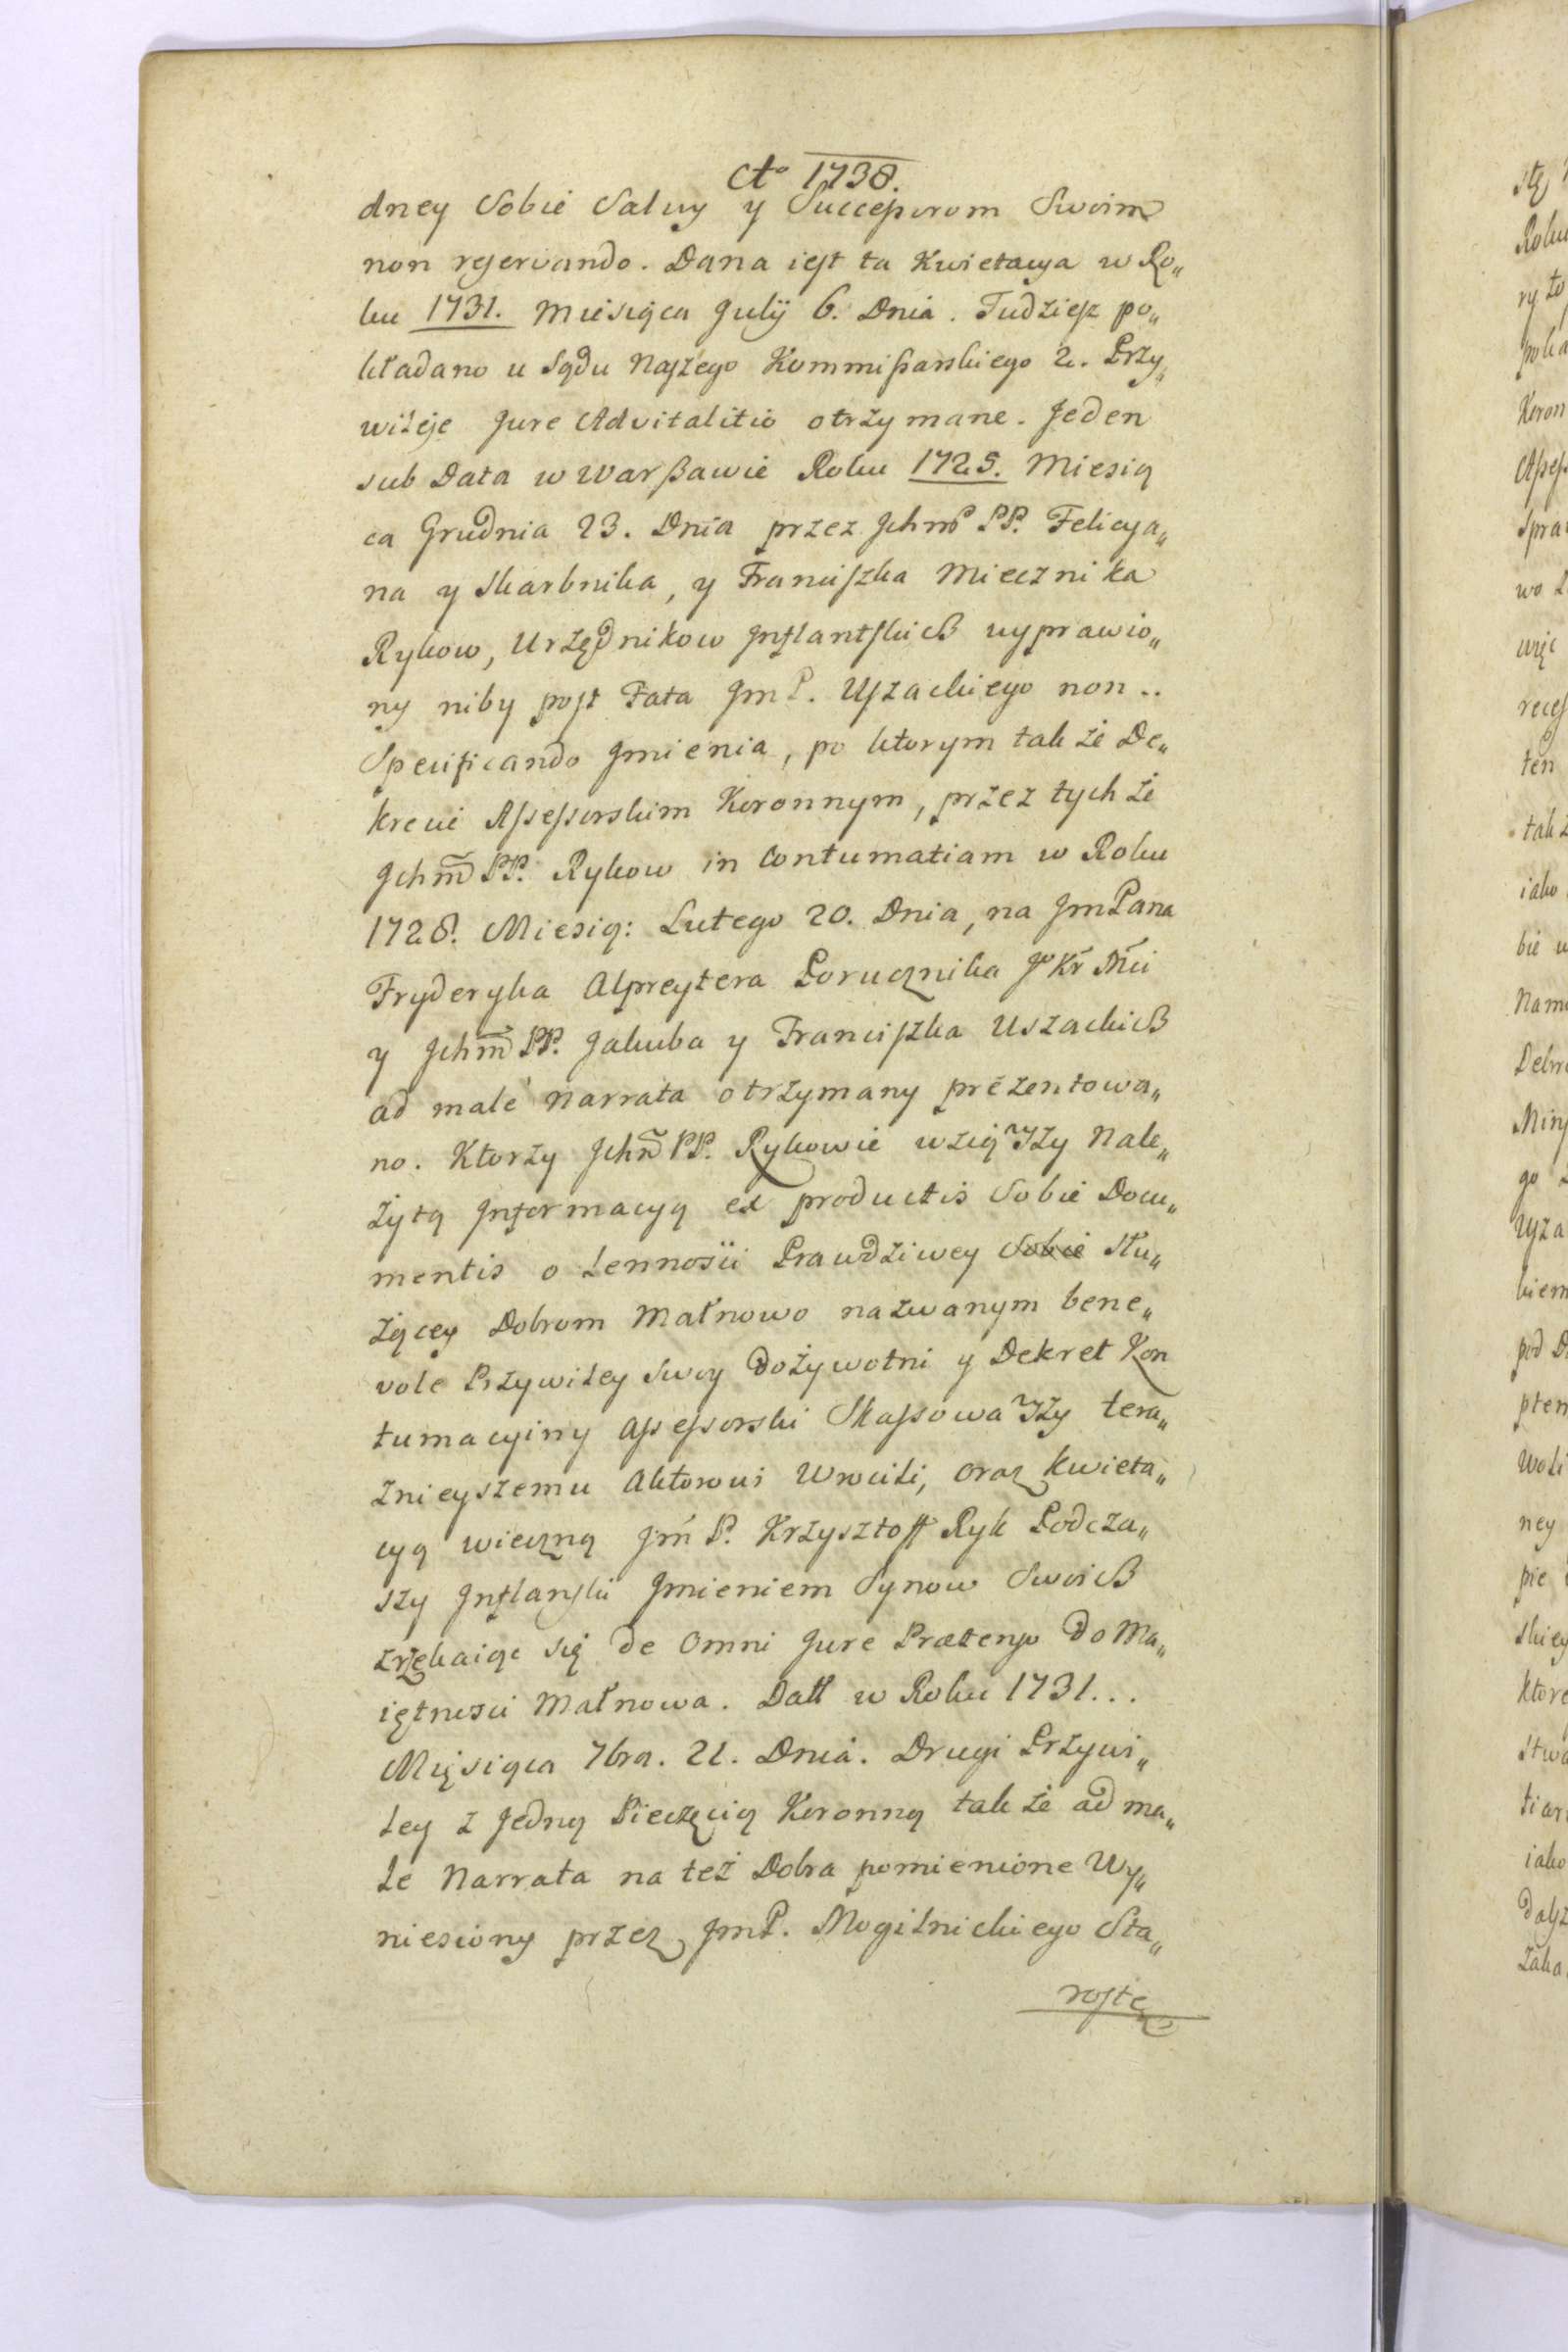 Ao 1738.
dney Sobie Salwy y Successorom Swoim
non reservando. Dana iest ta Kwietacya w Ro„
ku 1731. Miesiąca Julÿ 6. Dnia. Tudziesz po„
kładano u Sądu Naszego Kommissarskiego 2. Przy„
wileje Jure Advitalitio otrzymane. Jeden
sub Data w Warszawie Roku 1725. Miesią
ca Grudnia 23. Dnia przez Jchm̃ PP. Felicya„
na y Skarbnika, y Franciszka Miecznika
Rykow, Urzędnikow Inflantskich wyprawio„
ny niby post Fata Jm P. Uszackiego non ..
Specificando Imienia, po ktorym także De„
krecie Assessorskim Koronnym, przez tychże
Jchm̃ PP. Rykow in Contumatiam w Roku
1728. Miesią: Lutego 20. Dnia, na Jm Pana
Fryderyka Alpreytera Porucznika Jo Kr Mci
y Jchm̃ PP. Jakuba y Franciszka Uszackich
ad male narrata otrzymany prezentowa„
no. Ktorzy Jchm̃ PP. Rykowie wziąwszy Nale„
żytą Informacyą ex productis Sobie Docu„
mentis o Lennosci Prawdziwey Sobie Słu„
żącey Dobrom Małnowo nazwanym bene„
vole Przywiley Swoy dożywotni y Dekret Kon
tumacyiny Assessorski Skassowawszy tera„
znieyszemu Aktorowi Wrocili, oraz Kwieta„
cyą wieczną Jm̃ P. Krzysztoff Ryk Podcza„
szy Inflanski Imieniem Synow Swoich
zrzekaiąc się de Omni Jure Prætenso do Ma„
iętnosci Małnowa. Datt w Roku 1731...
Miesiąca 7bra. 21. Dnia. Drugi Przywi„
ley z Jedną Pieczęcią Koronną także ad ma„
le Narrata na też Dobra pomienione Wy„
niesiony przez JmP. Mogilnickiego Sta„
rostę